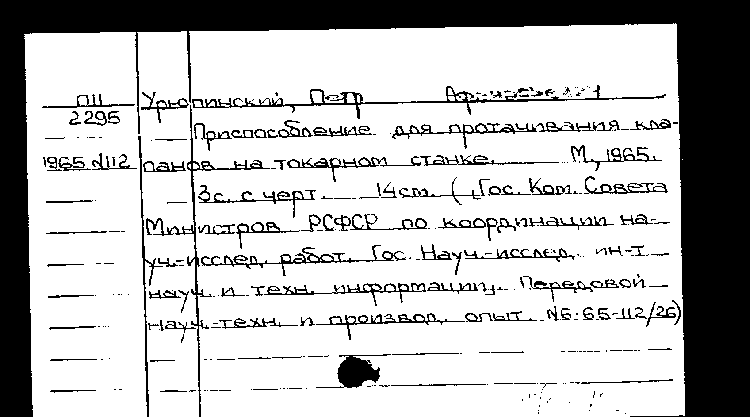 П11 Урюпинский, Петр
2295
Приспособление для протачивания кла-
1965 д112 панов на токарном станке. М., 1965.
3с. с черт. 14см. (Гос. Ком. Совета
Министров РСФСР по координации на-
уч.-исслед. работ. Гос. Науч.-исслед. ин-т
науч. и техн. информации. Передовой
науч.-техн. и производ. опыт. №6-65-112/26)